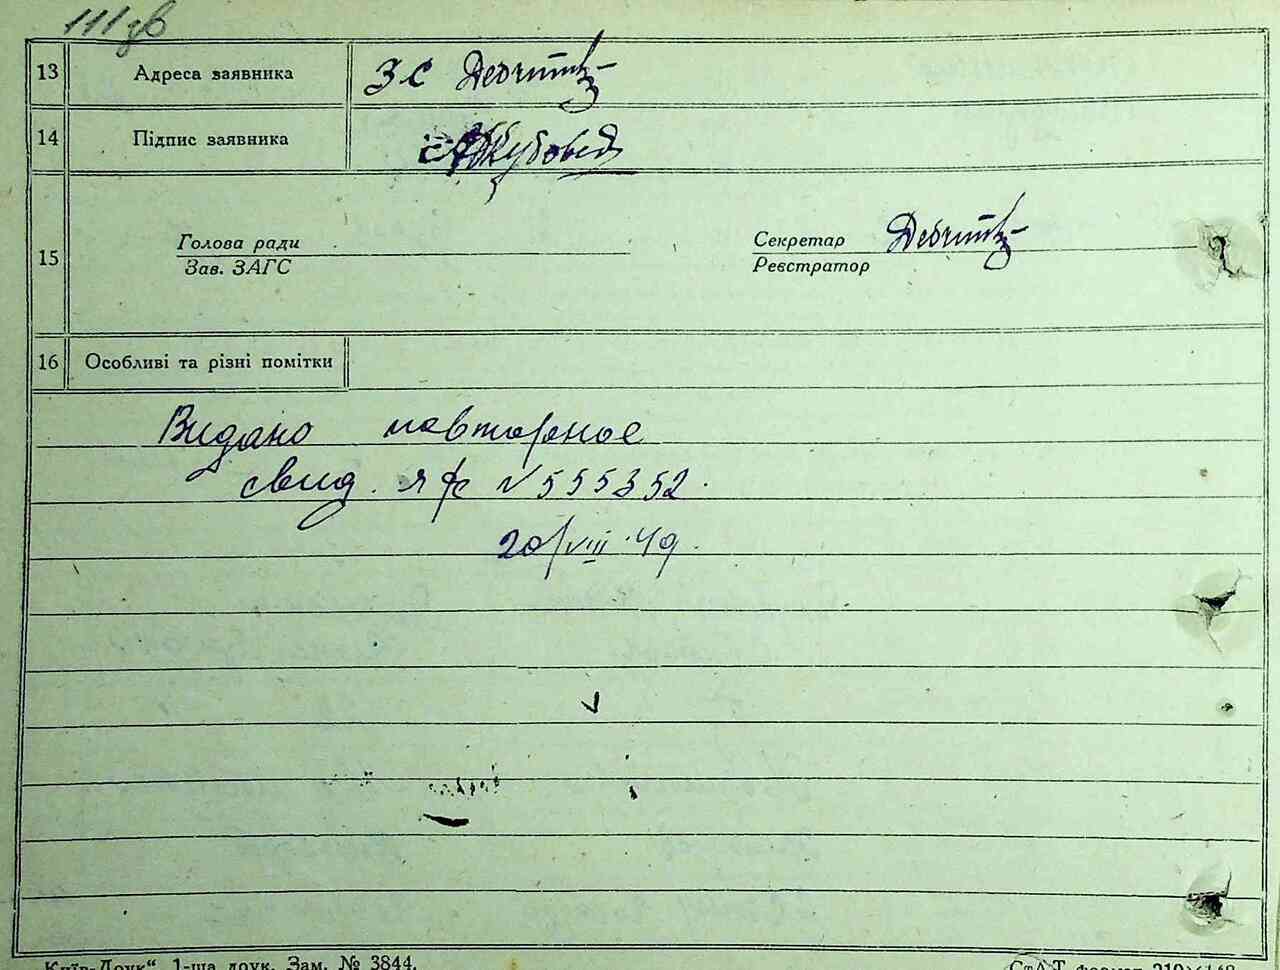 111 зв
13 Адреса заявника ЗС
14 Підпис заявника
15 Голова ради Секретар
Зав. ЗАГС Реєстратор
16 Особливі та різні помітки
Видано повторное
свид. ЯФ № 555352.
20/VIII 49.
Київ-Друк“ 1-ша друк. Зам. № 3844.